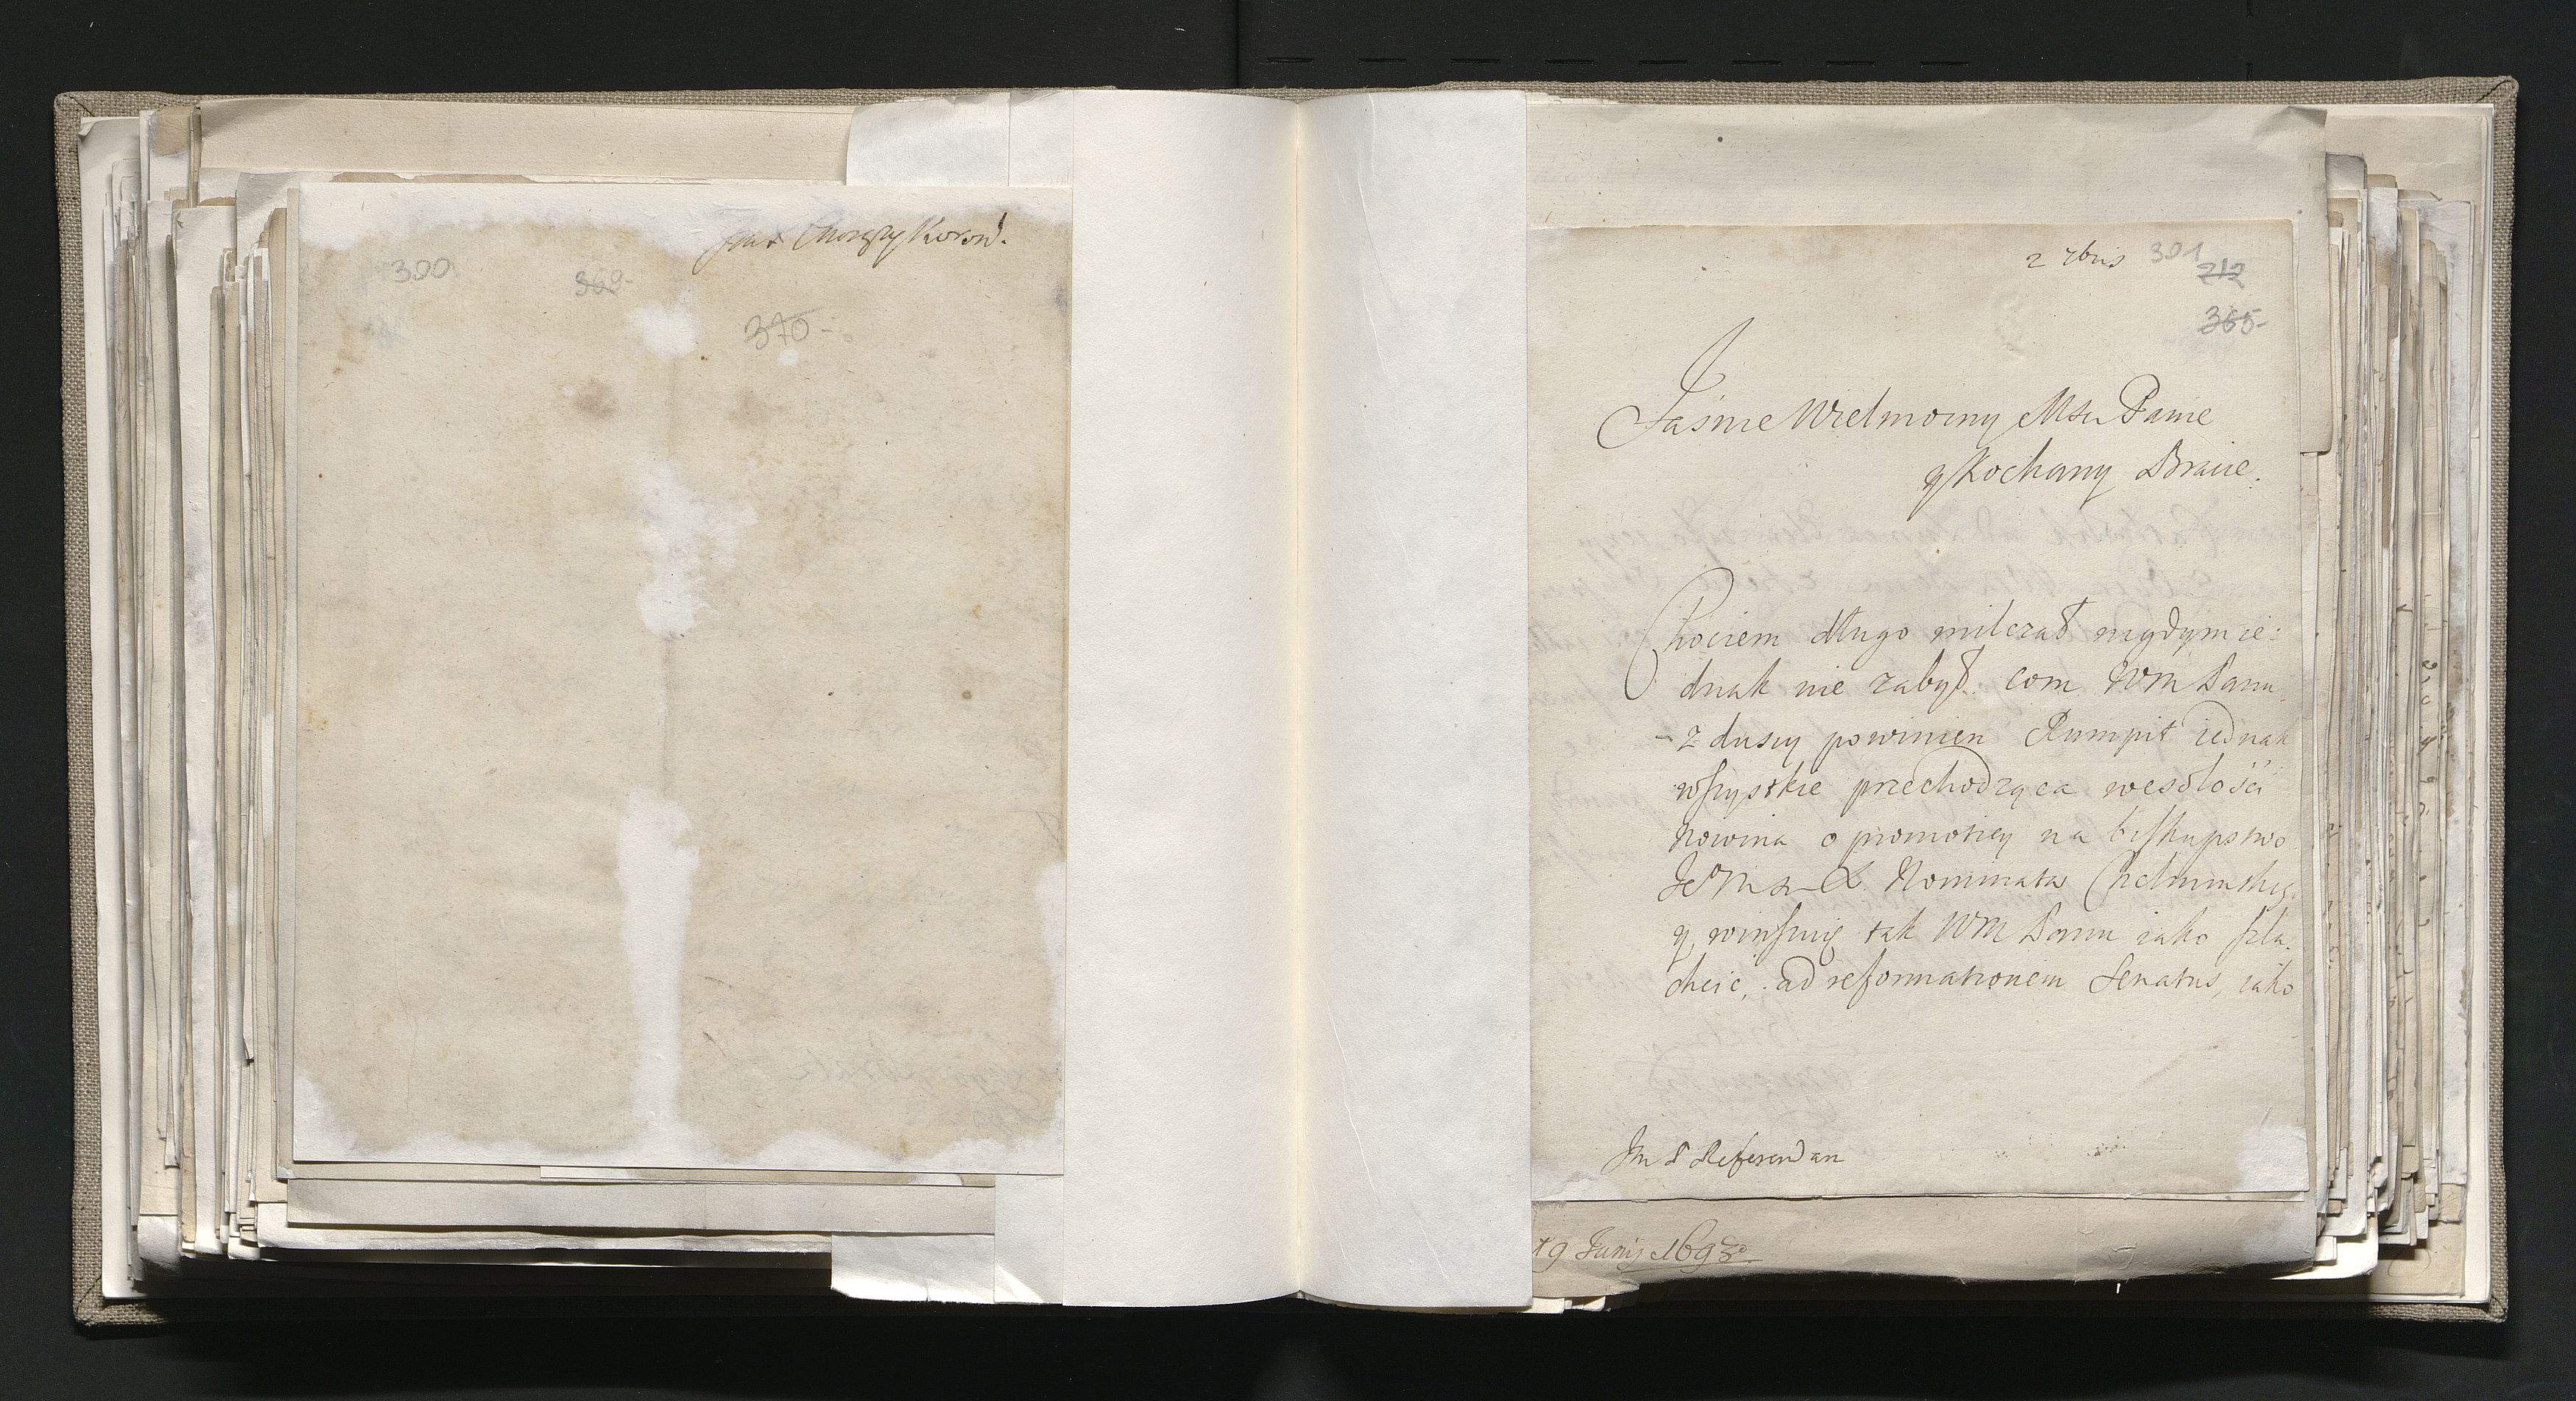 Jmć Chorąży Koron.
300
369
370
2 7bris 301
212
365
Jaśnie Wielmożny Mśu Panie
y Kochany Bracie.
Chociem długo milczał nigdym ie:
dnak nie zabył com WM Panu
z duszy powinien Rumpit iednak
wszystkie przechodząca wesołości
nowina o promotiey na biskupstwo
Nominata Chelminskie
y winszuię tak WM Panu iako szla
chcic, ad reformationem Senatus, iako
Jm P Referendarz
19 Junij 1693